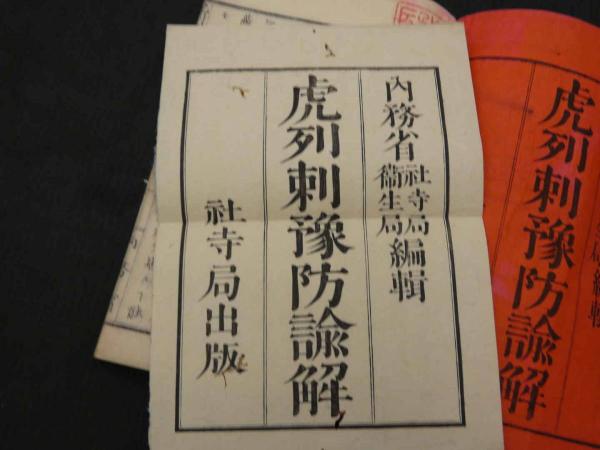 内務省社寺局衞生局編輯
虎列刺豫防諭解
社寺局出版
虎列刺豫防諭解